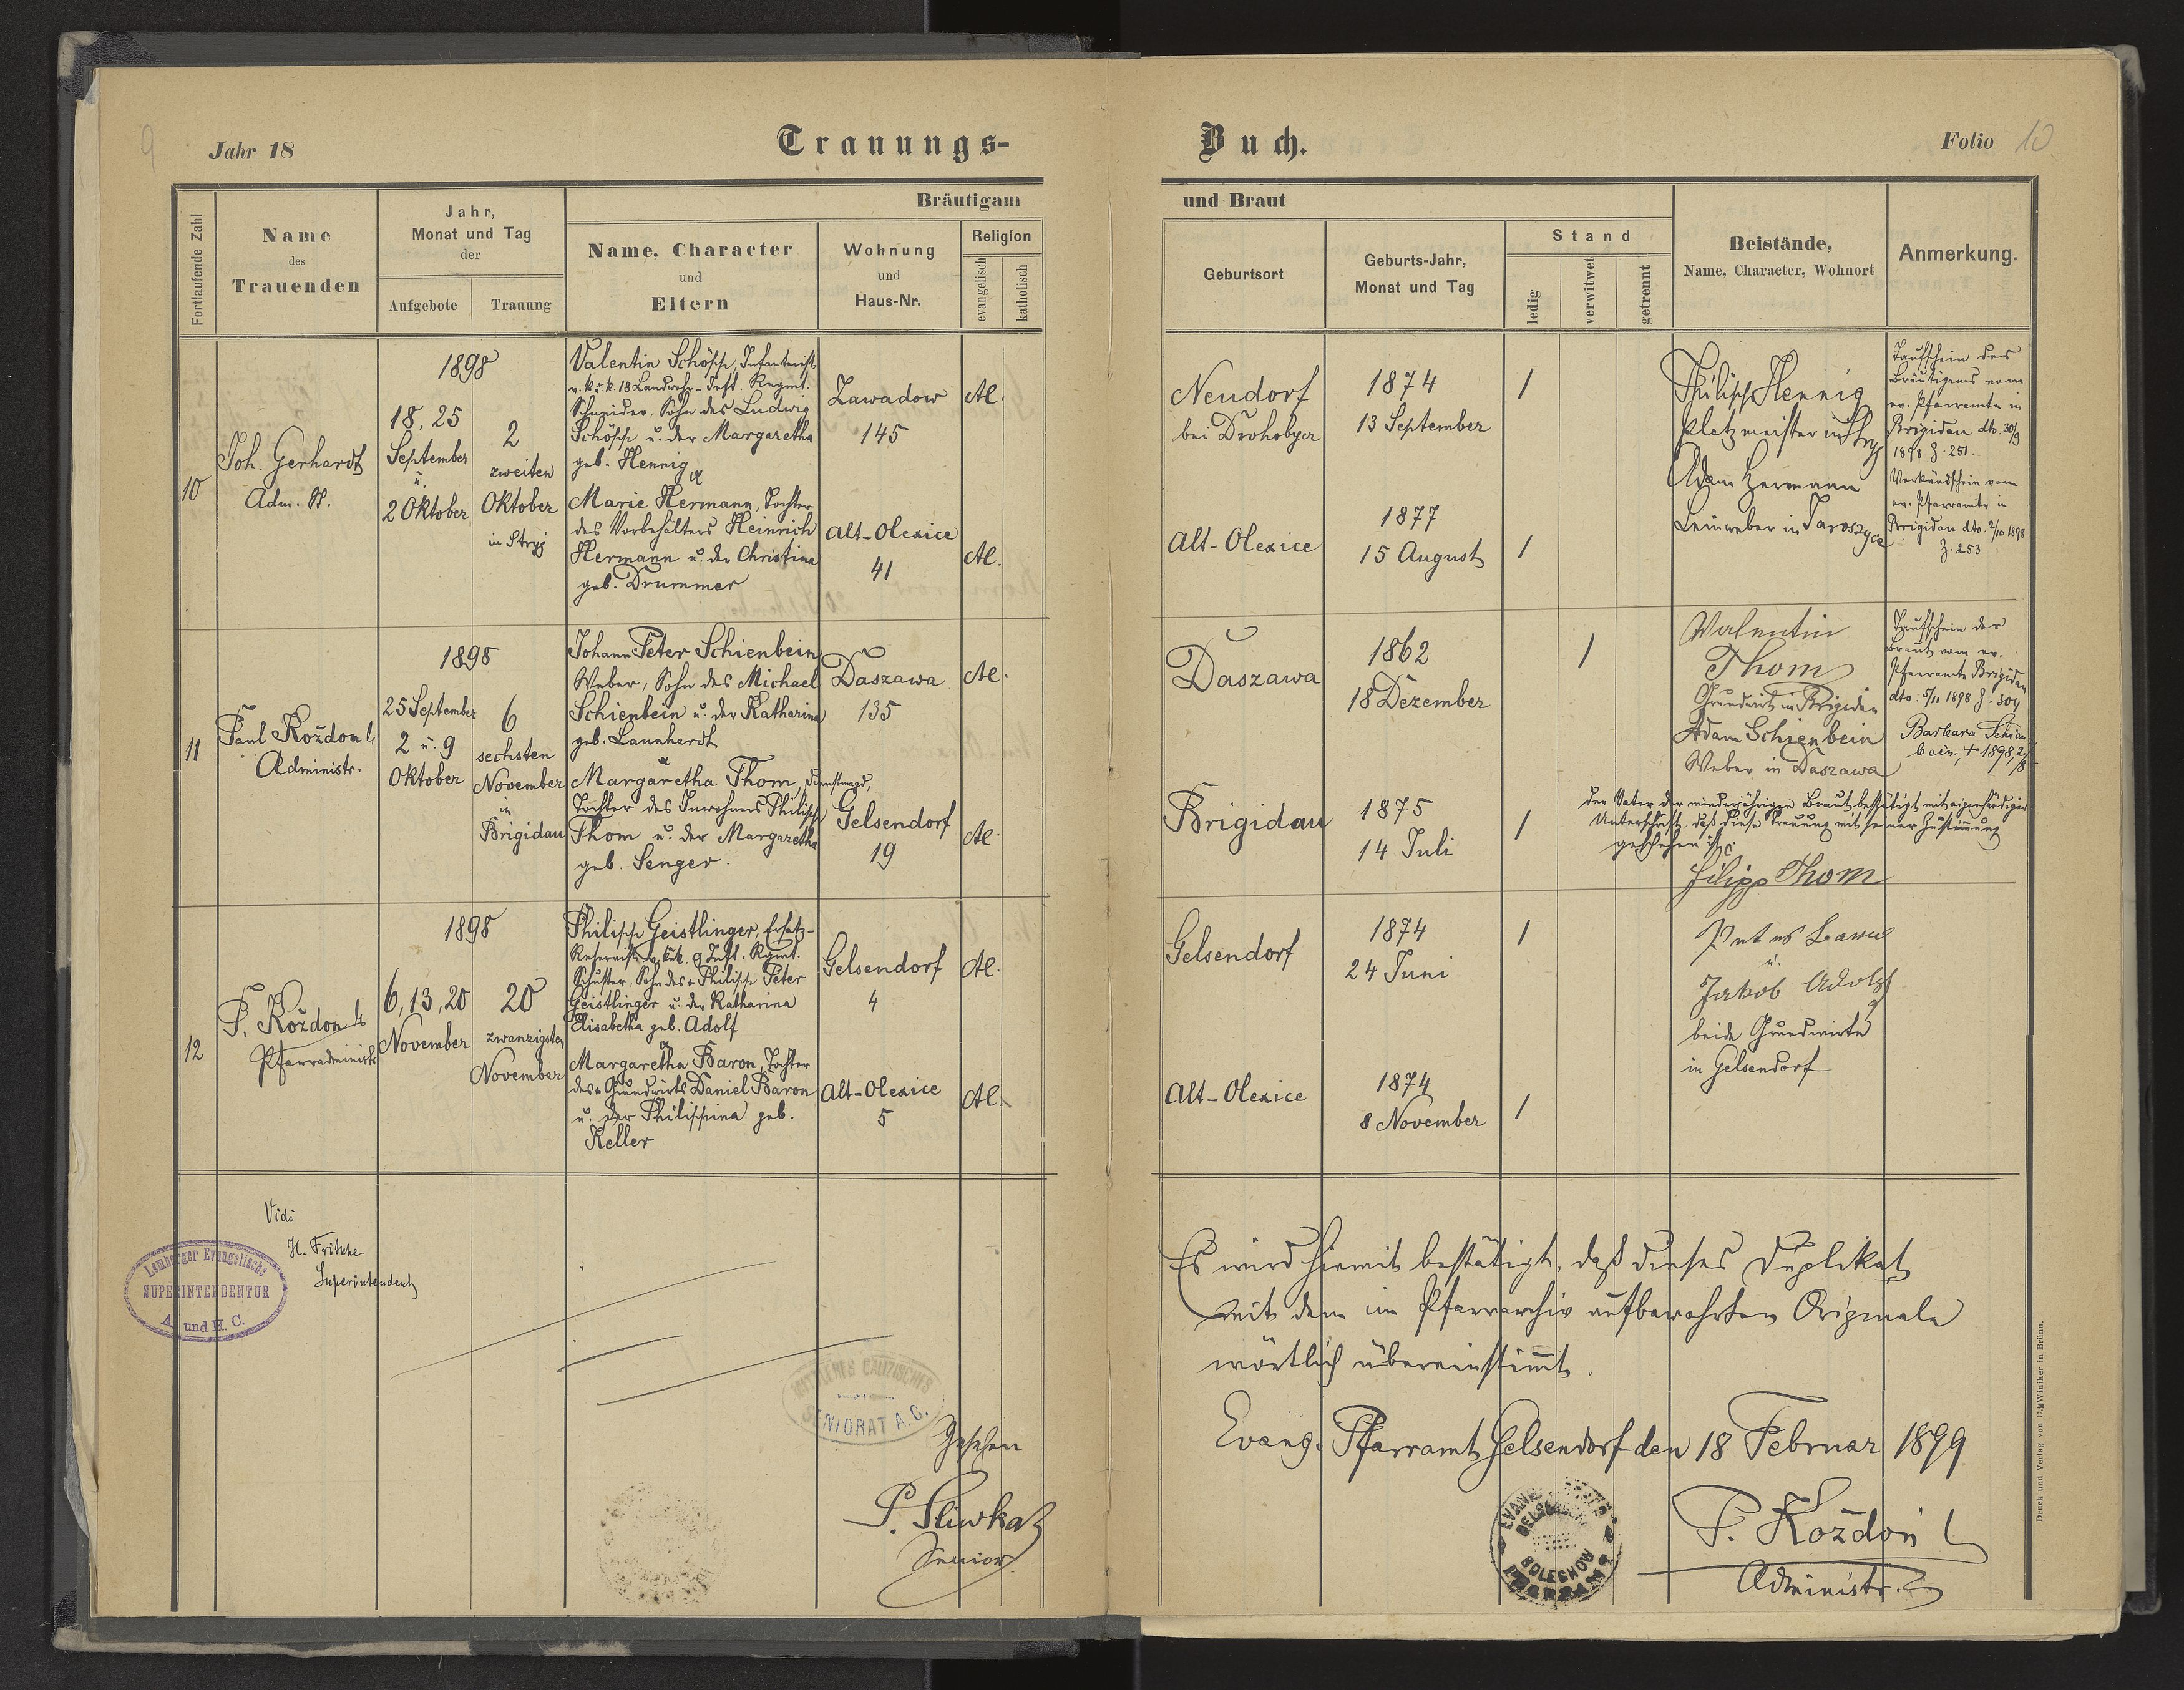 9
Jahr 18
Trauungs-
Buch.
Folio 10
Fortlaufende Zahl
Name
des
Trauenden
Jahr,
Monat und Tag
der
Aufgebote
Trauung
Bräutigam
und Braut
Name, Character
und
Eltern
Wohnung
und
Haus-Nr.
Religion
evangelisch
katholisch
Geburtsort
Geburts-Jahr,
Monat und Tag
Stand
ledig
verwitwet
getrennt
Beistände,
Name, Character, Wohnort
Anmerkung.
10
Joh. Gerhardt
Adm. H.
1898
18, 25
September
u.
2 Oktober
2
zweiten
Oktober
in Stryj
Valentin Schösch, Infanterist
v. k. k. 18 Landwehr-Inft. Regmt.
Schneider, Sohn des Ludwig
Schösch u. der Margaretha
geb. Hennig
Marie Hermann, Tochter
des Vorbehälters Heinrich
Hermann u. der Christina
geb. Drummer
Zawadow
145
Alt-Olexice
41
Al.
Al.
Neudorf
bei Drohobycz
1874
13 September
Alt-Olexice
1877
15 August
Philipp Hennig
Platzmeister in Stryj
Adam Hermann
Leinweber in Jaroszyce
Taufschein des
Bräutigams vom
ev. Pfarramte in
Brigidau dto. 30/9
1898 Z. 251.
Verkündschein vom
ev. Pfarramte in
Brigidau dto. 2/10 1898
Z. 253
11
Paul Kożdoń
Administr.
1898
25 September
2 u. 9
Oktober
6
sechsten
November
in
Brigidau
Johann Peter Schienbein
Weber, Sohn des Michael
Schienbein u. der Katharina
geb. Launhardt
Margaretha Thom, Dienstmagd,
Tochter des Inwohners Philipp
Thom u. der Margaretha
geb. Senger.
Daszawa
135
Gelsendorf
19
Al.
Al.
Daszawa
1862
18 Dezember
Brigidau
1875
14 Juli
Valentin
Thom
Grundwirt in Brigidau
Adam Schienbein
Weber in Daszawa
Taufschein der
Braut vom ev.
Pfarramte Brigidau
dto. 5/11 1898 Z. 304
Barbara Schien
bein, † 1898, 2/8
Der Vater der minderjährigen Braut bestätigt mit eigenhändiger
Unterschrift, daß diese Trauung mit seiner Zustimmung
geschehen ist:
Filipp Thom
12
P. Kożdoń
Pfarradministr.
1898
6, 13, 20
November
20
zwanzigsten
November
Philipp Geistlinger, Ersatz-
Reservist v. k. u. k. 9 Inft. Rgmt.
Schuster, Sohn des + Philipp Peter
Geistlinger u. der Katharina
Elisabetha geb. Adolf
Margaretha Baron, Tochter
des + Grundwirts Daniel Baron
u. der Philippina geb.
Keller
Gelsendorf
4
Alt-Olexice
5
Al.
Al.
Gelsendorf
1874
24 Juni
Alt-Olexice
1874
8 November
u.
Jakob Adolf
beide Grundwirte
in Gelsendorf
Vidi
H. Fritsche
Superintendent
Lemberger Evangelische
SUPERINTENDENTUR
A. und H. C.
MITTLERES GALIZISCHES
SENIORAT A. C.
Gesehen
P. Sliwka
Senior
Es wird hiemit bestätigt, daß dieses Duplikat
mit dem im Pfarrarchiv aufbewahrten Originale
wörtlich übereinstimmt.
Evang. Pfarramt Gelsendorf den 18 Februar 1899
P. Kożdoń
Administr.
BOLECHOW
PFARRAMT
Druck und Verlag von C. Winiker in Brünn.